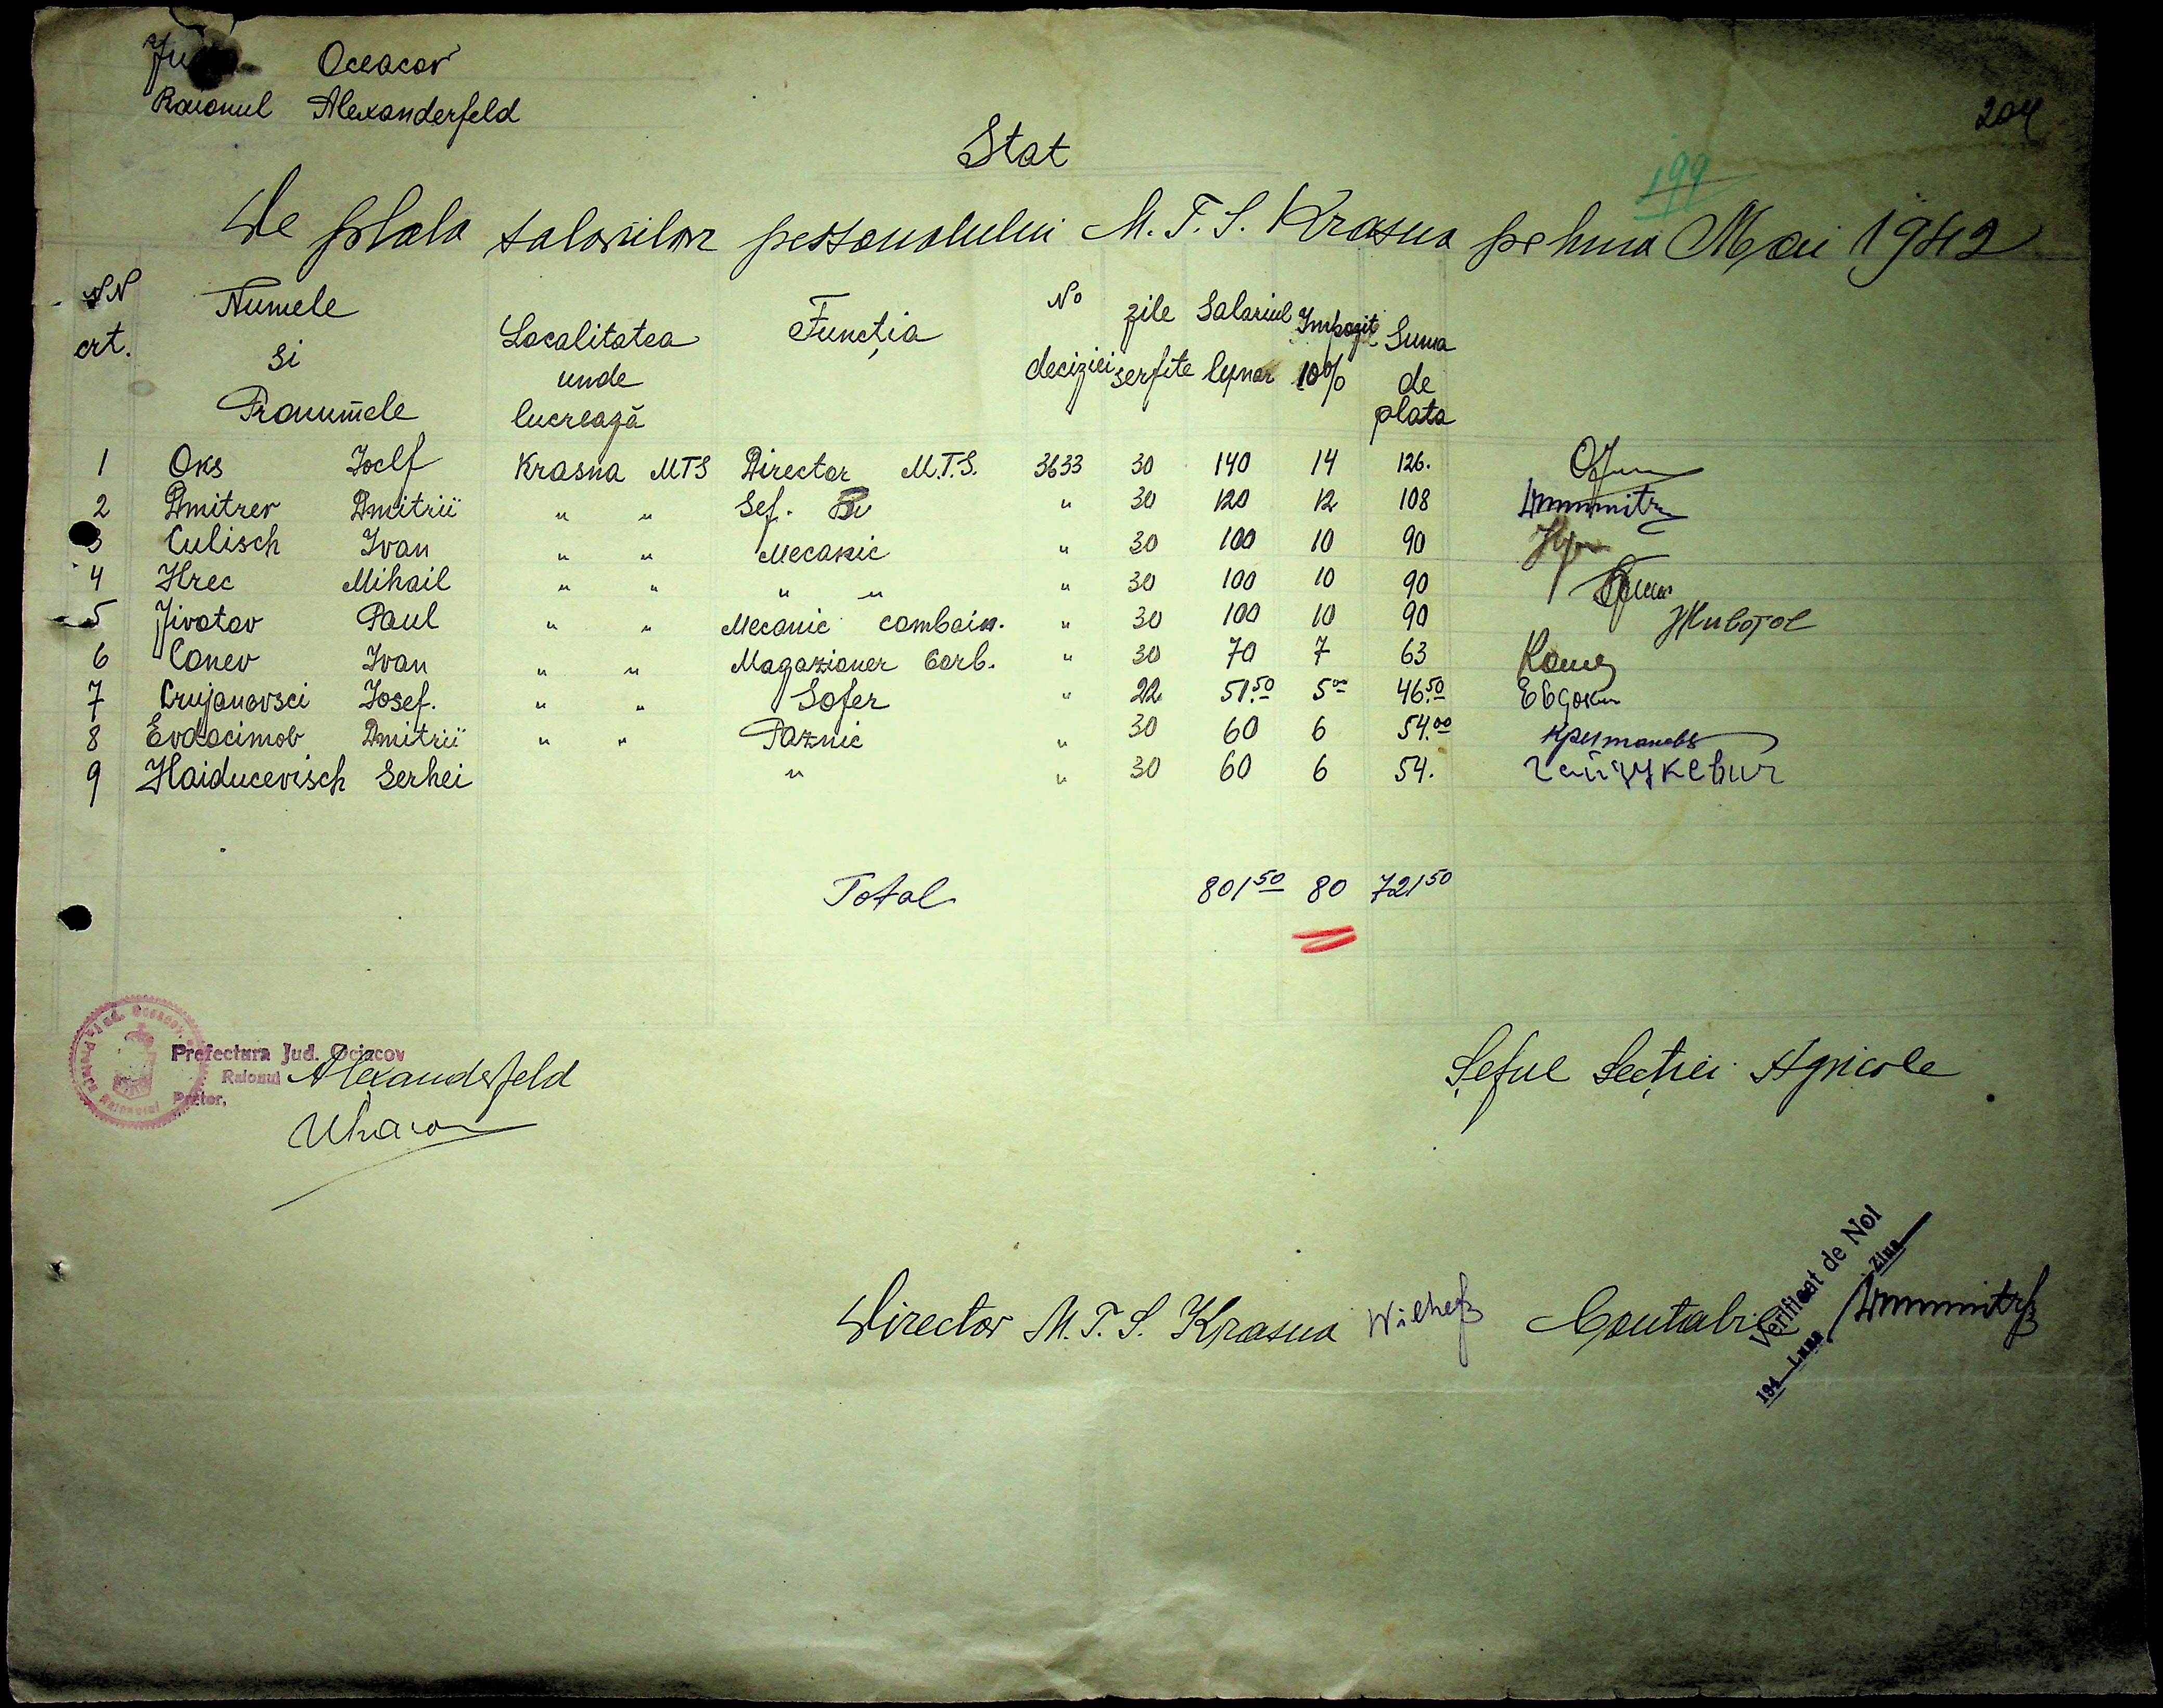 Oceacov
Raionul Alexanderfeld
204
Stat
199
De plata salariilor personalului M.T.S. Krasna pe luna Mai 1942
NN crt. Numele si Pronumele Localitatea unde lucrează Funcția No deciziei zile serfite Salariul lunar Impozit 10% Suma de plata
1 Oks Joelf Krasna MTS Director M.T.S. 3633 30 140 14 126.
2 Dmitrev Dmitrii " " Sef. " 30 120 12 108
3 Culisch Ivan " " Mecanic " 30 100 10 90
4 Hrec Mihail " " " " " 30 100 10 90
5 Jivotov Paul " " Mecanic combain. " 30 100 10 90 Животов
6 Conev Ivan " " Magazioner Carb. " 30 70 7 63
7 Crujanovsci Josef. " " Sofer " 22 51.50 5 00 46.50 Евдоки
8 Evdocimov Dmitrii " " Paznic " 30 60 6 54.00
9 Haiducevisch Serhei " " 30 60 6 54. Гайдукевич
Total 801 50 80 721 50
Prefectura Jud. Ociacov
Raionul Alexanderfeld
Pretor,
Șeful Secției Agricole
Director M.T.S. Krasna Contabil
Verificat de Noi
194 Luna Ziua